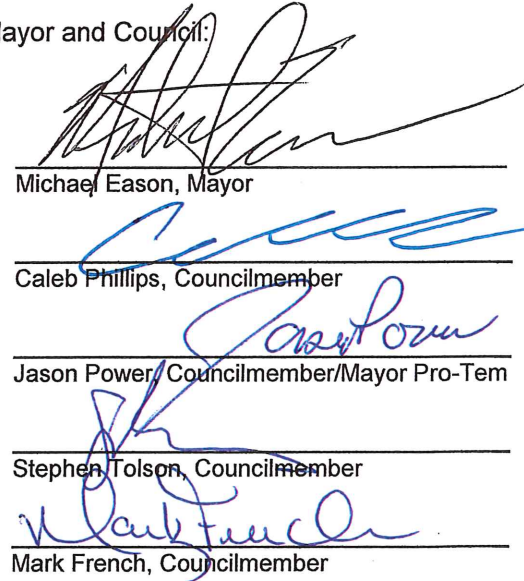 Mayor and Council:
Michael Eason, Mayor
Caleb Phillips, Councilmember
Jason Power
Jason Power, Councilmember/Mayor Pro-Tem
Stephen Tolson, Councilmember
Mark French
Mark French, Councilmember